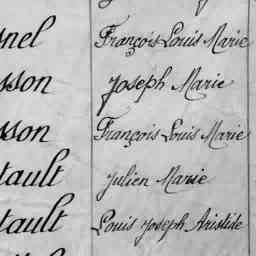 nel François Louis Marie
sson Joseph Marie
sson François Louis Marie
tault Julien Marie
tault Louis Joseph Aristide